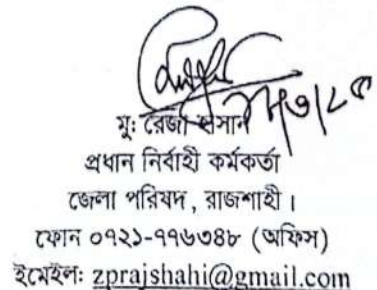 মু: রেজা হাসান
প্রধান নির্বাহী কর্মকর্তা
জেলা পরিষদ, রাজশাহী।
ফোন ০৭২১-৭৭৬৩৪৮ (অফিস)
ইমেইল: zprajshahi@gmail.com